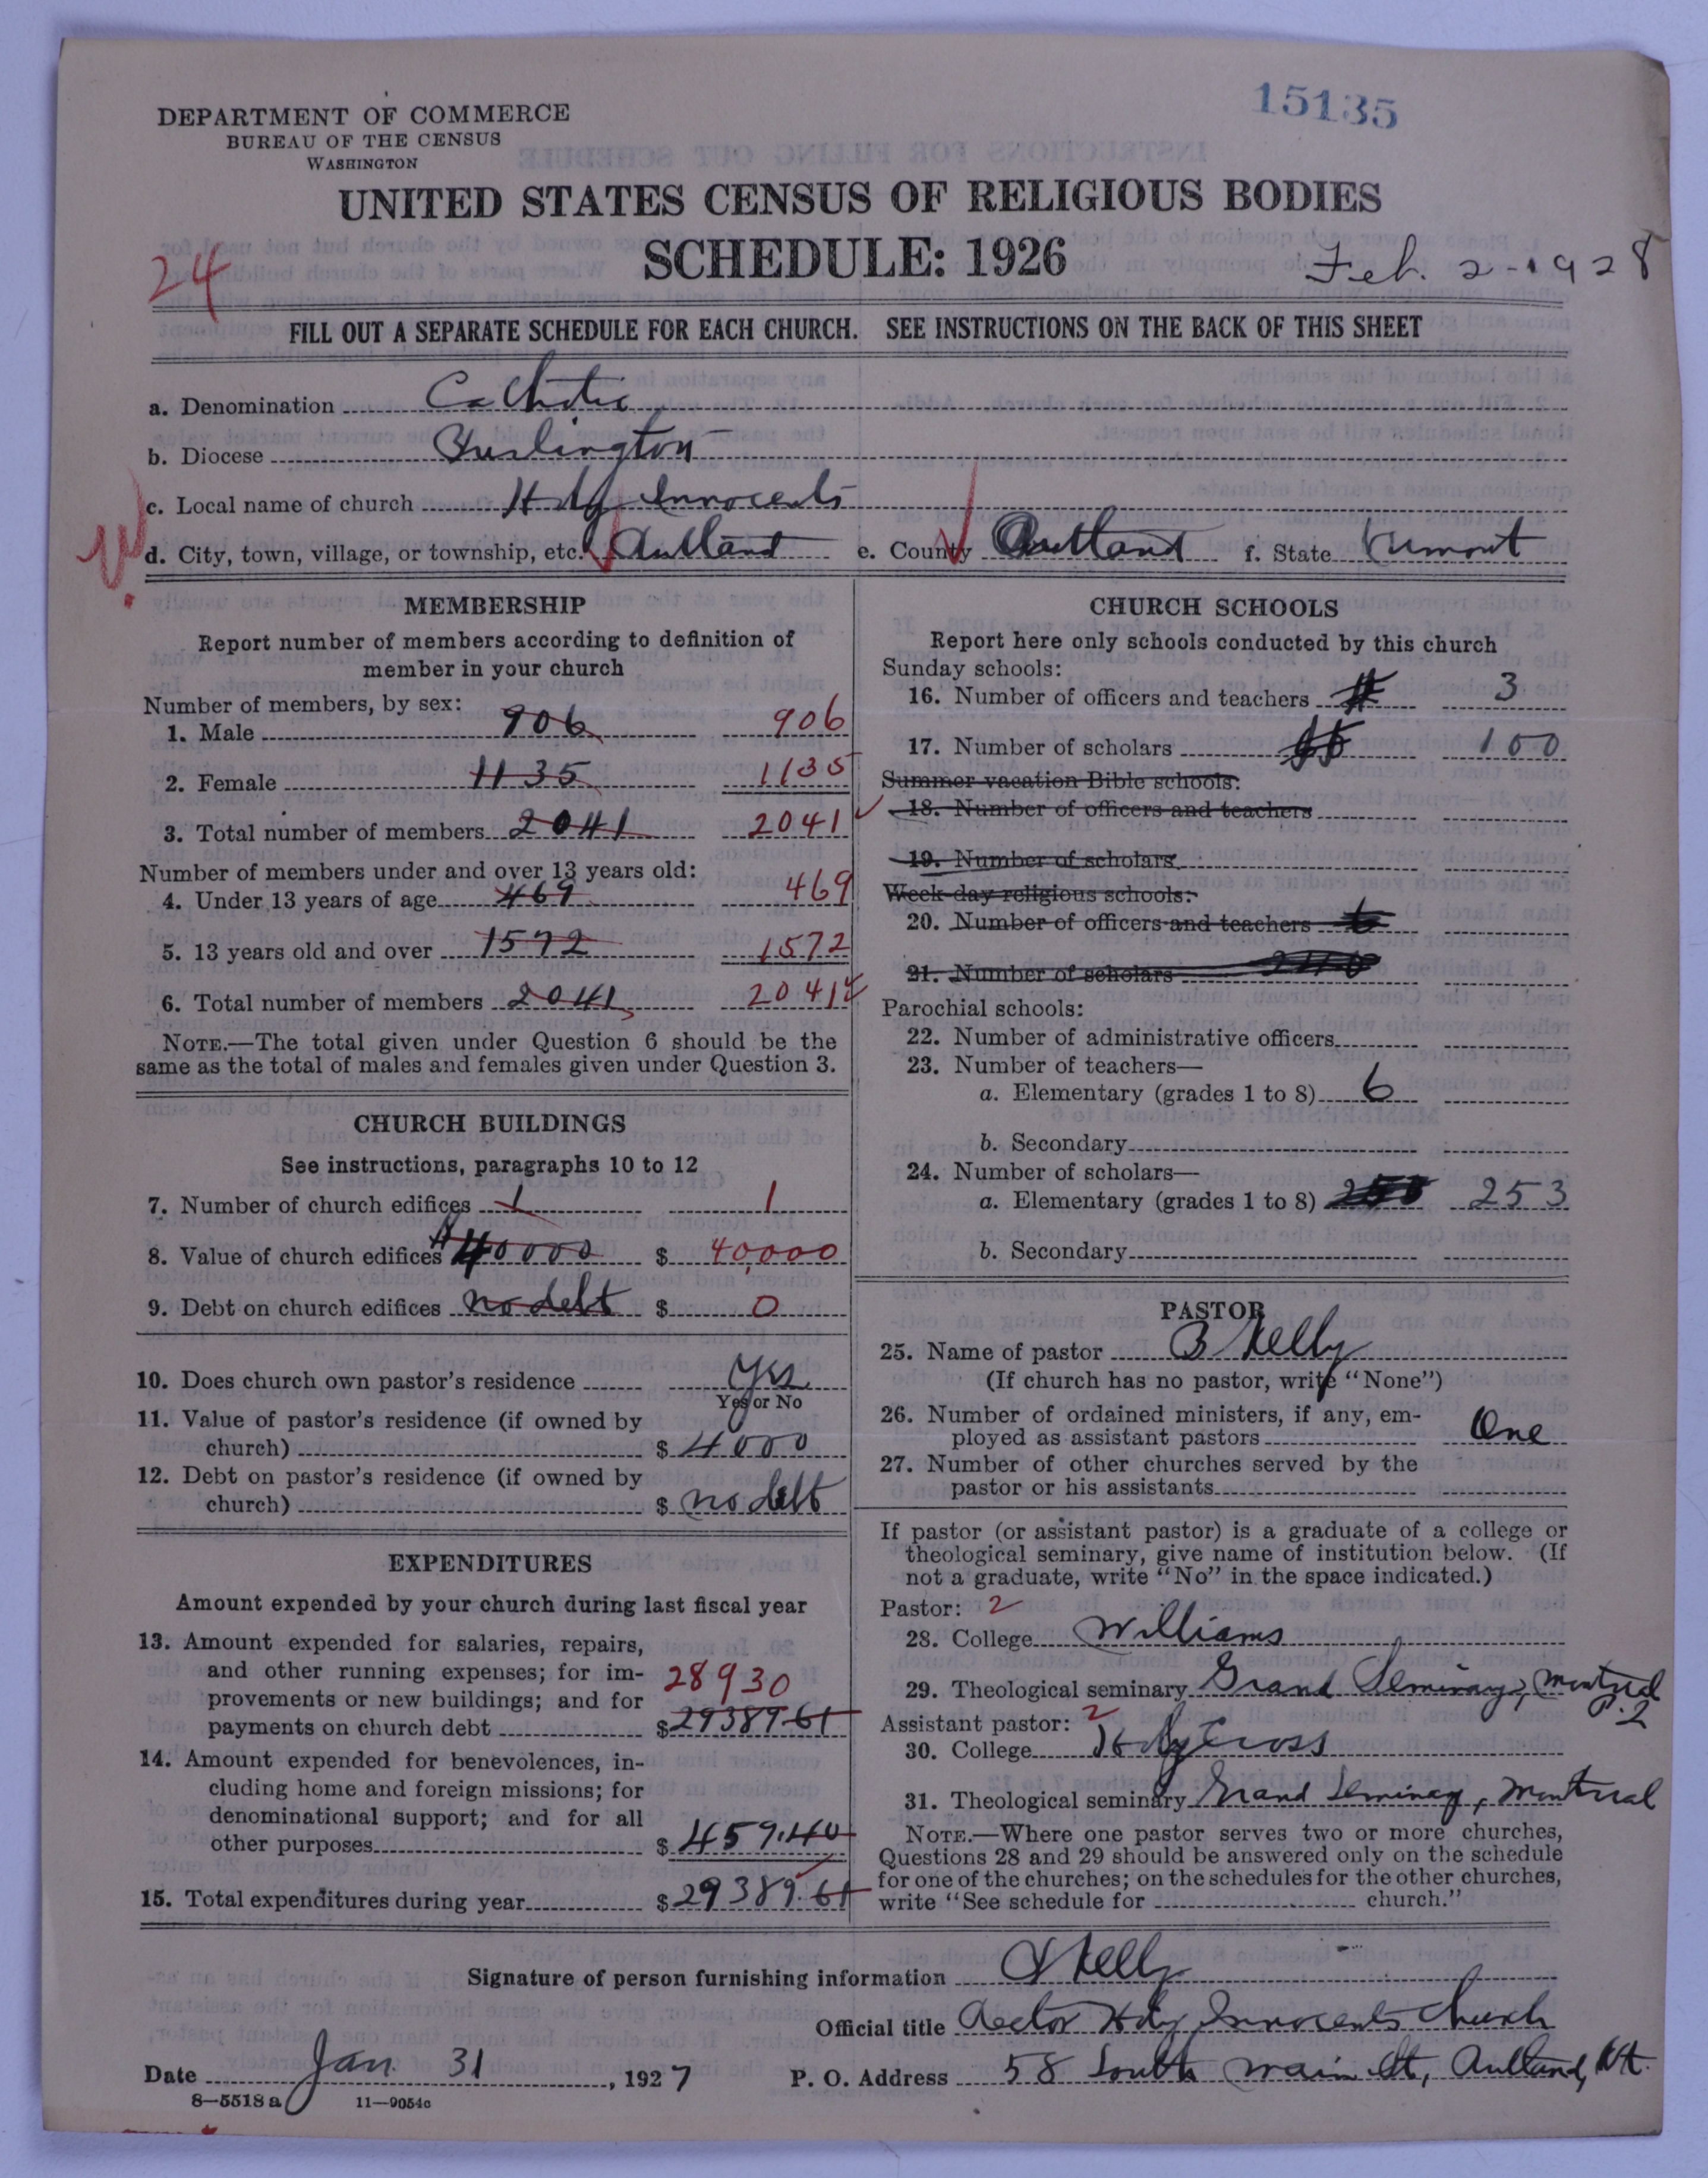 15135
DEPARTMENT OF COMMERCE
BUREAU OF THE CENSUS
WASHINGTON
UNITED STATES CENSUS OF RELIGIOUS BODIES
SCHEDULE: 1926
24
Feb. 2-1928
FILL OUT A SEPARATE SCHEDULE FOR EACH CHURCH. SEE INSTRUCTIONS ON THE BACK OF THIS SHEET
a. Denomination Catholic
b. Diocese Burlington
c. Local name of church Holy Innocents
d. City, town, village, or township, etc. Rutland e. County Rutland f. State Vermont
MEMBERSHIP
Report number of members according to definition of
member in your church
Number of members, by sex:
1. Male 906 906
2. Female 1135 1135
3. Total number of members 2041 2041
Number of members under and over 13 years old:
4. Under 13 years of age 469 469
5. 13 years old and over 1572 1572
6. Total number of members 2041 2041
NOTE.—The total given under Question 6 should be the
same as the total of males and females given under Question 3.
CHURCH BUILDINGS
See instructions, paragraphs 10 to 12
7. Number of church edifices 1 1
8. Value of church edifices 40000 $ 40,000
9. Debt on church edifices no debt $ 0
10. Does church own pastor's residence Yes
Yes or No
11. Value of pastor's residence (if owned by
church) $ 4000
12. Debt on pastor's residence (if owned by
church) $ no debt
EXPENDITURES
Amount expended by your church during last fiscal year
13. Amount expended for salaries, repairs,
and other running expenses; for im-
provements or new buildings; and for 28930
payments on church debt $ 29389.61
14. Amount expended for benevolences, in-
cluding home and foreign missions; for
denominational support; and for all
other purposes $ 459.40
15. Total expenditures during year $ 29389.61
CHURCH SCHOOLS
Report here only schools conducted by this church
Sunday schools:
16. Number of officers and teachers 3
17. Number of scholars 100
Summer vacation Bible schools:
18. Number of officers and teachers
19. Number of scholars
Week-day religious schools:
20. Number of officers and teachers
21. Number of scholars
Parochial schools:
22. Number of administrative officers
23. Number of teachers—
a. Elementary (grades 1 to 8) 6
b. Secondary
24. Number of scholars—
a. Elementary (grades 1 to 8) 253
b. Secondary
PASTOR
25. Name of pastor Kelly
(If church has no pastor, write "None")
26. Number of ordained ministers, if any, em-
ployed as assistant pastors One
27. Number of other churches served by the
pastor or his assistants
If pastor (or assistant pastor) is a graduate of a college or
theological seminary, give name of institution below. (If
not a graduate, write "No" in the space indicated.)
Pastor: 2
28. College Williams
29. Theological seminary Grand Seminary, Montreal
P.2
Assistant pastor: 2
30. College Holy Cross
31. Theological seminary Grand Seminary, Montreal
NOTE.—Where one pastor serves two or more churches,
Questions 28 and 29 should be answered only on the schedule
for one of the churches; on the schedules for the other churches,
write "See schedule for church."
Signature of person furnishing information Kelly
Official title Rector Holy Innocents Church
Date Jan 31, 1927 P. O. Address 58 South Main St, Rutland, Vt.
8—5518 a 11—9054c